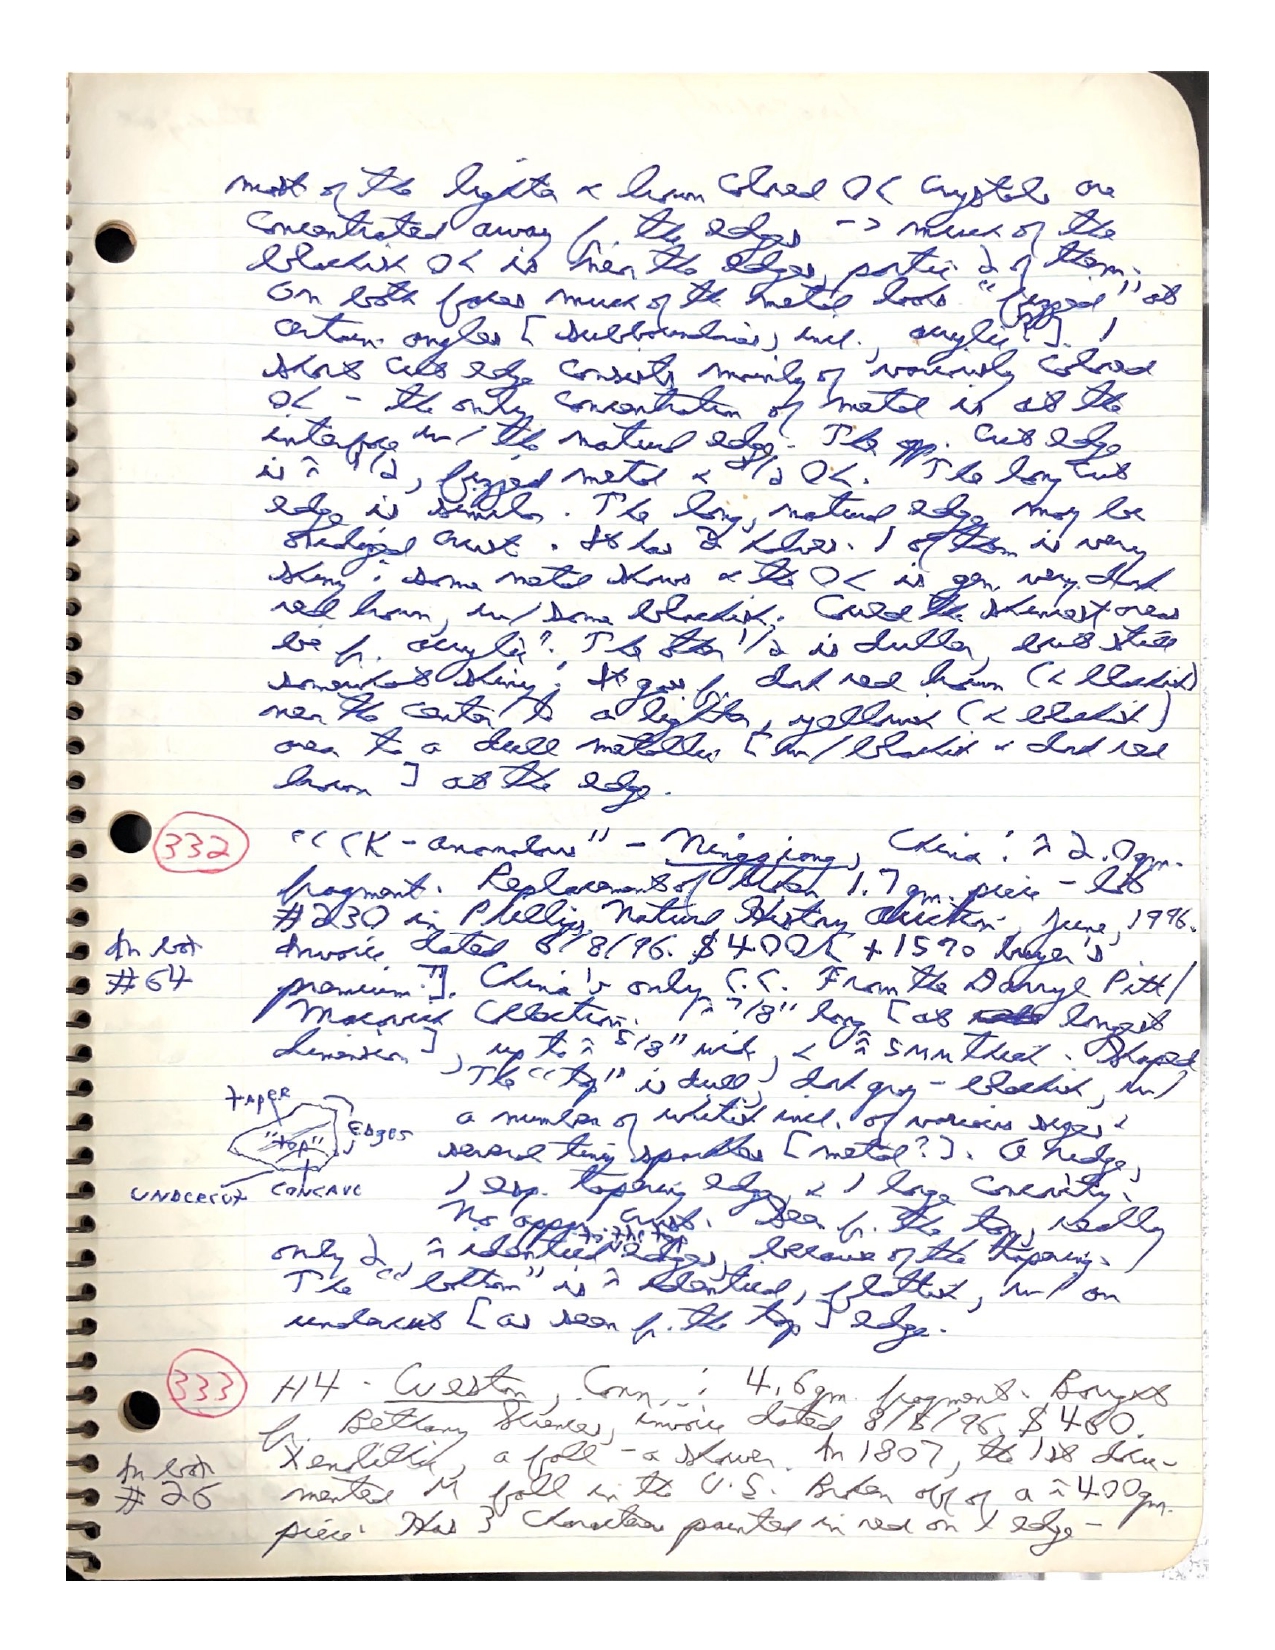 most of the lighter & brown colored OL crystals are
concentrated away f. the edges -> much of the
blackish OL is near the edges, partic. 2 of them.
On both faces much of the metal looks "fizzed" at
certain angles [subboundaries, incl., acrylic?]. 1
short cut edge consists mainly of variously colored
OL - the only concentration of metal is at the
interface w/ the natural edge. The opp. cut edge
is ≈ 1/2 fizzed metal & 1/2 OL. The long cut
edge is similar. The long, natural edge may be
oxidized crust. It has 2 halves. 1 of them is very
shiny: some metal shows & the OL is gen. very dark
red brown, w/ some blackish. Could the shiniest areas
be f. acrylic? The other 1/2 is duller, but still
somewhat shiny: It goes f. dark red brown (& blackish)
near the center to a lighter, yellowish (& blackish)
area to a dull metallic [w/ blackish & dark red
brown] at the edge.
332 "CCK-anomalous" - Ningqiang, China: ≈ 2.0gm.
fragment. Replacement of 1.7gm. piece - lot
#230 in Phillips Natural History Auction, June, 1996.
In lot Invoice dated 8/8/96. $400 [+15% buyer's
#64 premium?]. China's only C.C. From the Darryl Pitt/
Macovich Collection. ≈ 7/8" long [at longest
dimension], up to ≈ 5/8" wide, & ≈ 5mm thick. Shaped
The "top" is dull, dark gray - blackish, w/
taper
a number of whitish incl. of various sizes &
"top" EDGES
several tiny sparkles [metal?]. A ridge,
UNDERCUT CONCAVE
1 esp. tapering edge, & 1 large concavity.
No appar. crust. Seen f. the top, really
to the top
only 2 ≈ identical edges, because of the tapering.
The "bottom" is ≈ identical, flattish, w/ an
undercut [as seen f. the top] edge.
333 H4 - Weston, Conn.: 4.6gm. fragment. Bought
f. Bethany Sciences, invoice dated 8/8/96. $460.
In lot Xenolithic, a fall - a shower. In 1807, the 1st docu-
#26 mented M fall in the U.S. Broken off of a ≈ 400gm.
piece. Has 3 characters painted in red on 1 edge -